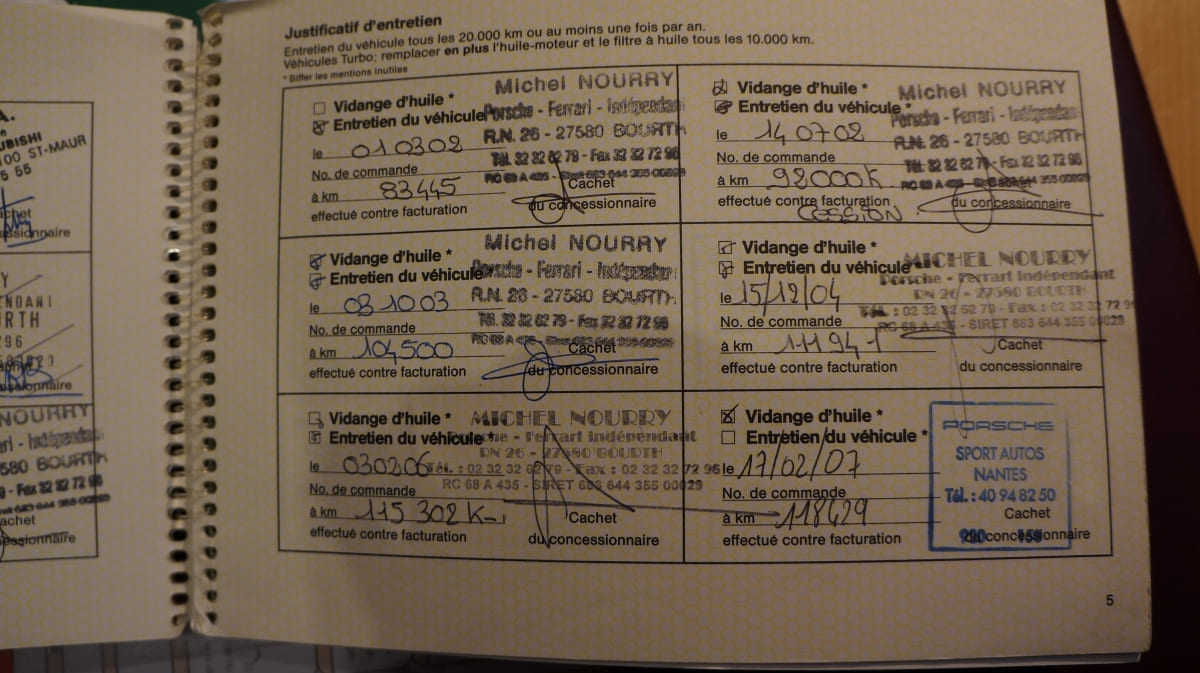 A.
UBISHI
100 ST-MAUR
5 55
cachet
ssionnaire
Y
ENDANT
URTH
296
ssionnaire
NOURRY
rari - Indépendan
580 BOURTH
- Fax 32 32 72 96
achet
essionnaire
Justificatif d'entretien
Entretien du véhicule tous les 20.000 km ou au moins une fois par an.
Véhicules Turbo: remplacer en plus l'huile-moteur et le filtre à huile tous les 10.000 km.
* Biffer les mentions inutiles
Vidange d'huile *
Entretien du véhicule
le 010302
No. de commande
à km 83445
effectué contre facturation
Michel NOURRY
Porsche - Ferrari - Indépendant
R.N. 26 - 27580 BOURTH
Tél. 32 32 62 79 - Fax 32 32 72 96
Cachet
du concessionnaire
Vidange d'huile *
Entretien du véhicule *
le 140702
No. de commande
à km 92000K
effectué contre facturation
CESSION
Michel NOURRY
Porsche - Ferrari - Indépendant
R.N. 26 - 27580 BOURTH
Tél. 32 32 62 79 - Fax 32 32 72 96
Cachet
du concessionnaire
Vidange d'huile *
Entretien du véhicule
le 031003
No. de commande
à km 104500
effectué contre facturation
Michel NOURRY
Porsche - Ferrari - Indépendant
R.N. 26 - 27580 BOURTH
Tél. 32 32 62 79 - Fax 32 32 72 96
Cachet
du concessionnaire
Vidange d'huile *
Entretien du véhicule *
le 15/12/04
No. de commande
à km 111941
effectué contre facturation
MICHEL NOURRY
Porsche - Ferrari Indépendant
RN 26 - 27580 BOURTH
Tél. : 02 32 32 62 79 - Fax : 02 32 32 72 96
RC 68 A 435 - SIRET 683 644 355 00029
Cachet
du concessionnaire
Vidange d'huile *
Entretien du véhicule *
le 030206
No. de commande
à km 115302 Km
effectué contre facturation
MICHEL NOURRY
Porsche - Ferrari Indépendant
RN 26 - 27580 BOURTH
Tél. : 02 32 32 62 79 - Fax : 02 32 32 72 96
RC 68 A 435 - SIRET 683 644 355 00029
Cachet
du concessionnaire
Vidange d'huile *
Entretien du véhicule *
le 17/02/07
No. de commande
à km 118429
effectué contre facturation
PORSCHE
SPORT AUTOS
NANTES
Tél. : 40 94 82 50
Cachet
du concessionnaire
5